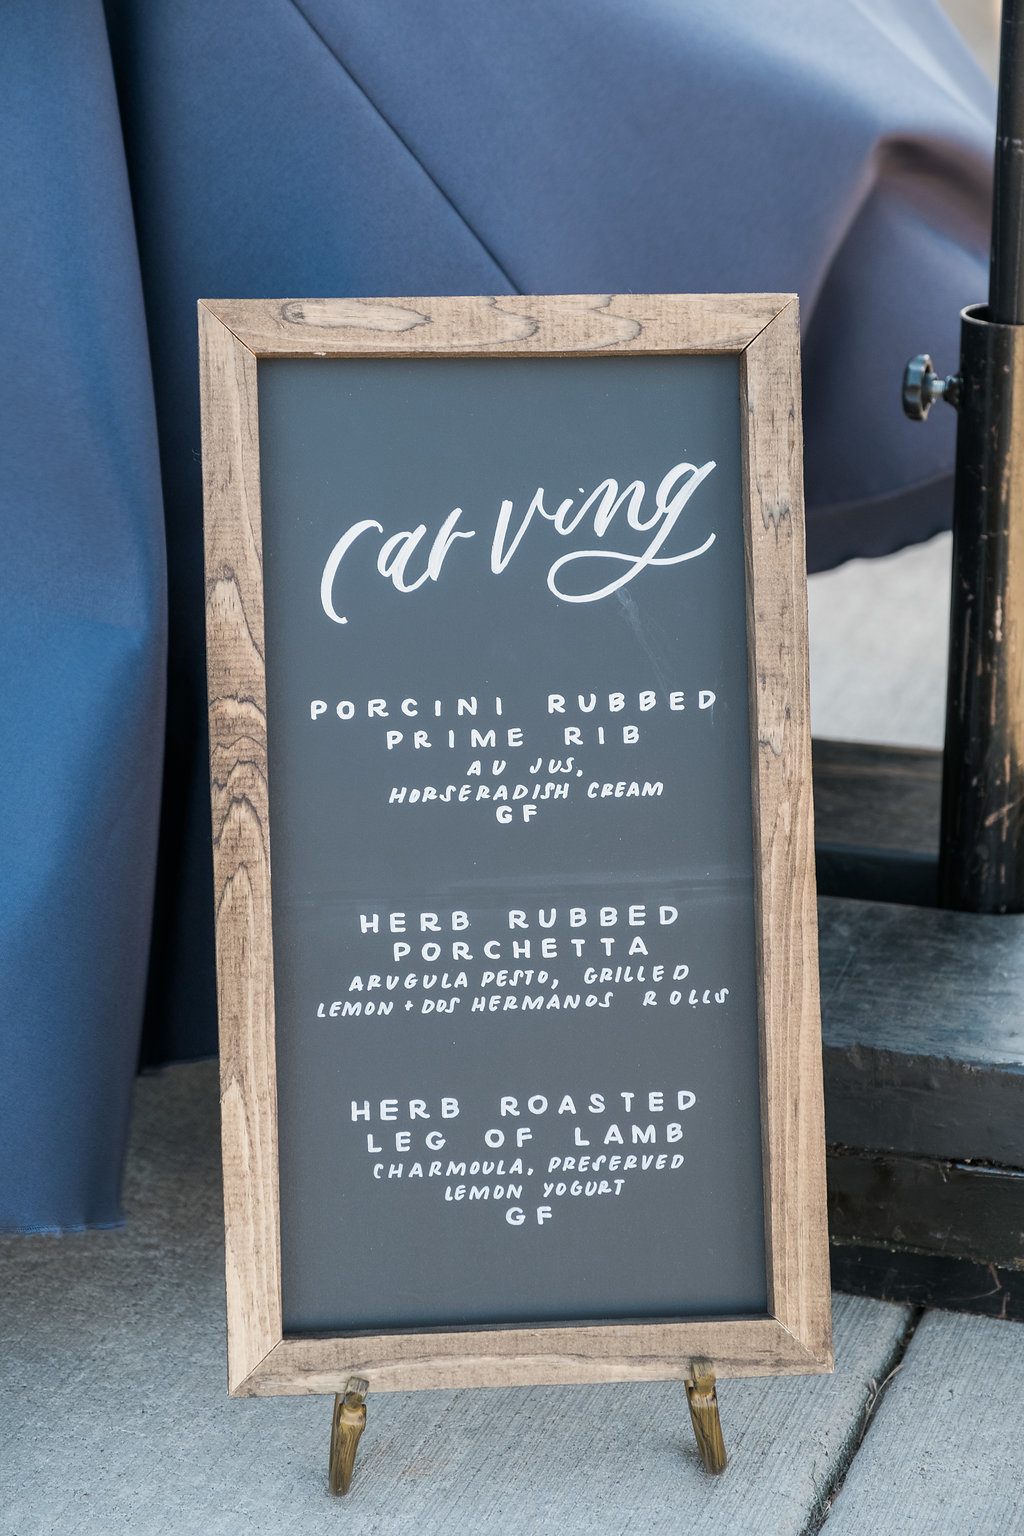 Carving
PORCINI RUBBED
PRIME RIB
AU JUS,
HORSERADISH CREAM
GF
HERB RUBBED
PORCHETTA
ARUGULA PESTO, GRILLED
LEMON + DOS HERMANOS ROLLS
HERB ROASTED
LEG OF LAMB
CHARMOULA, PRESERVED
LEMON YOGURT
GF